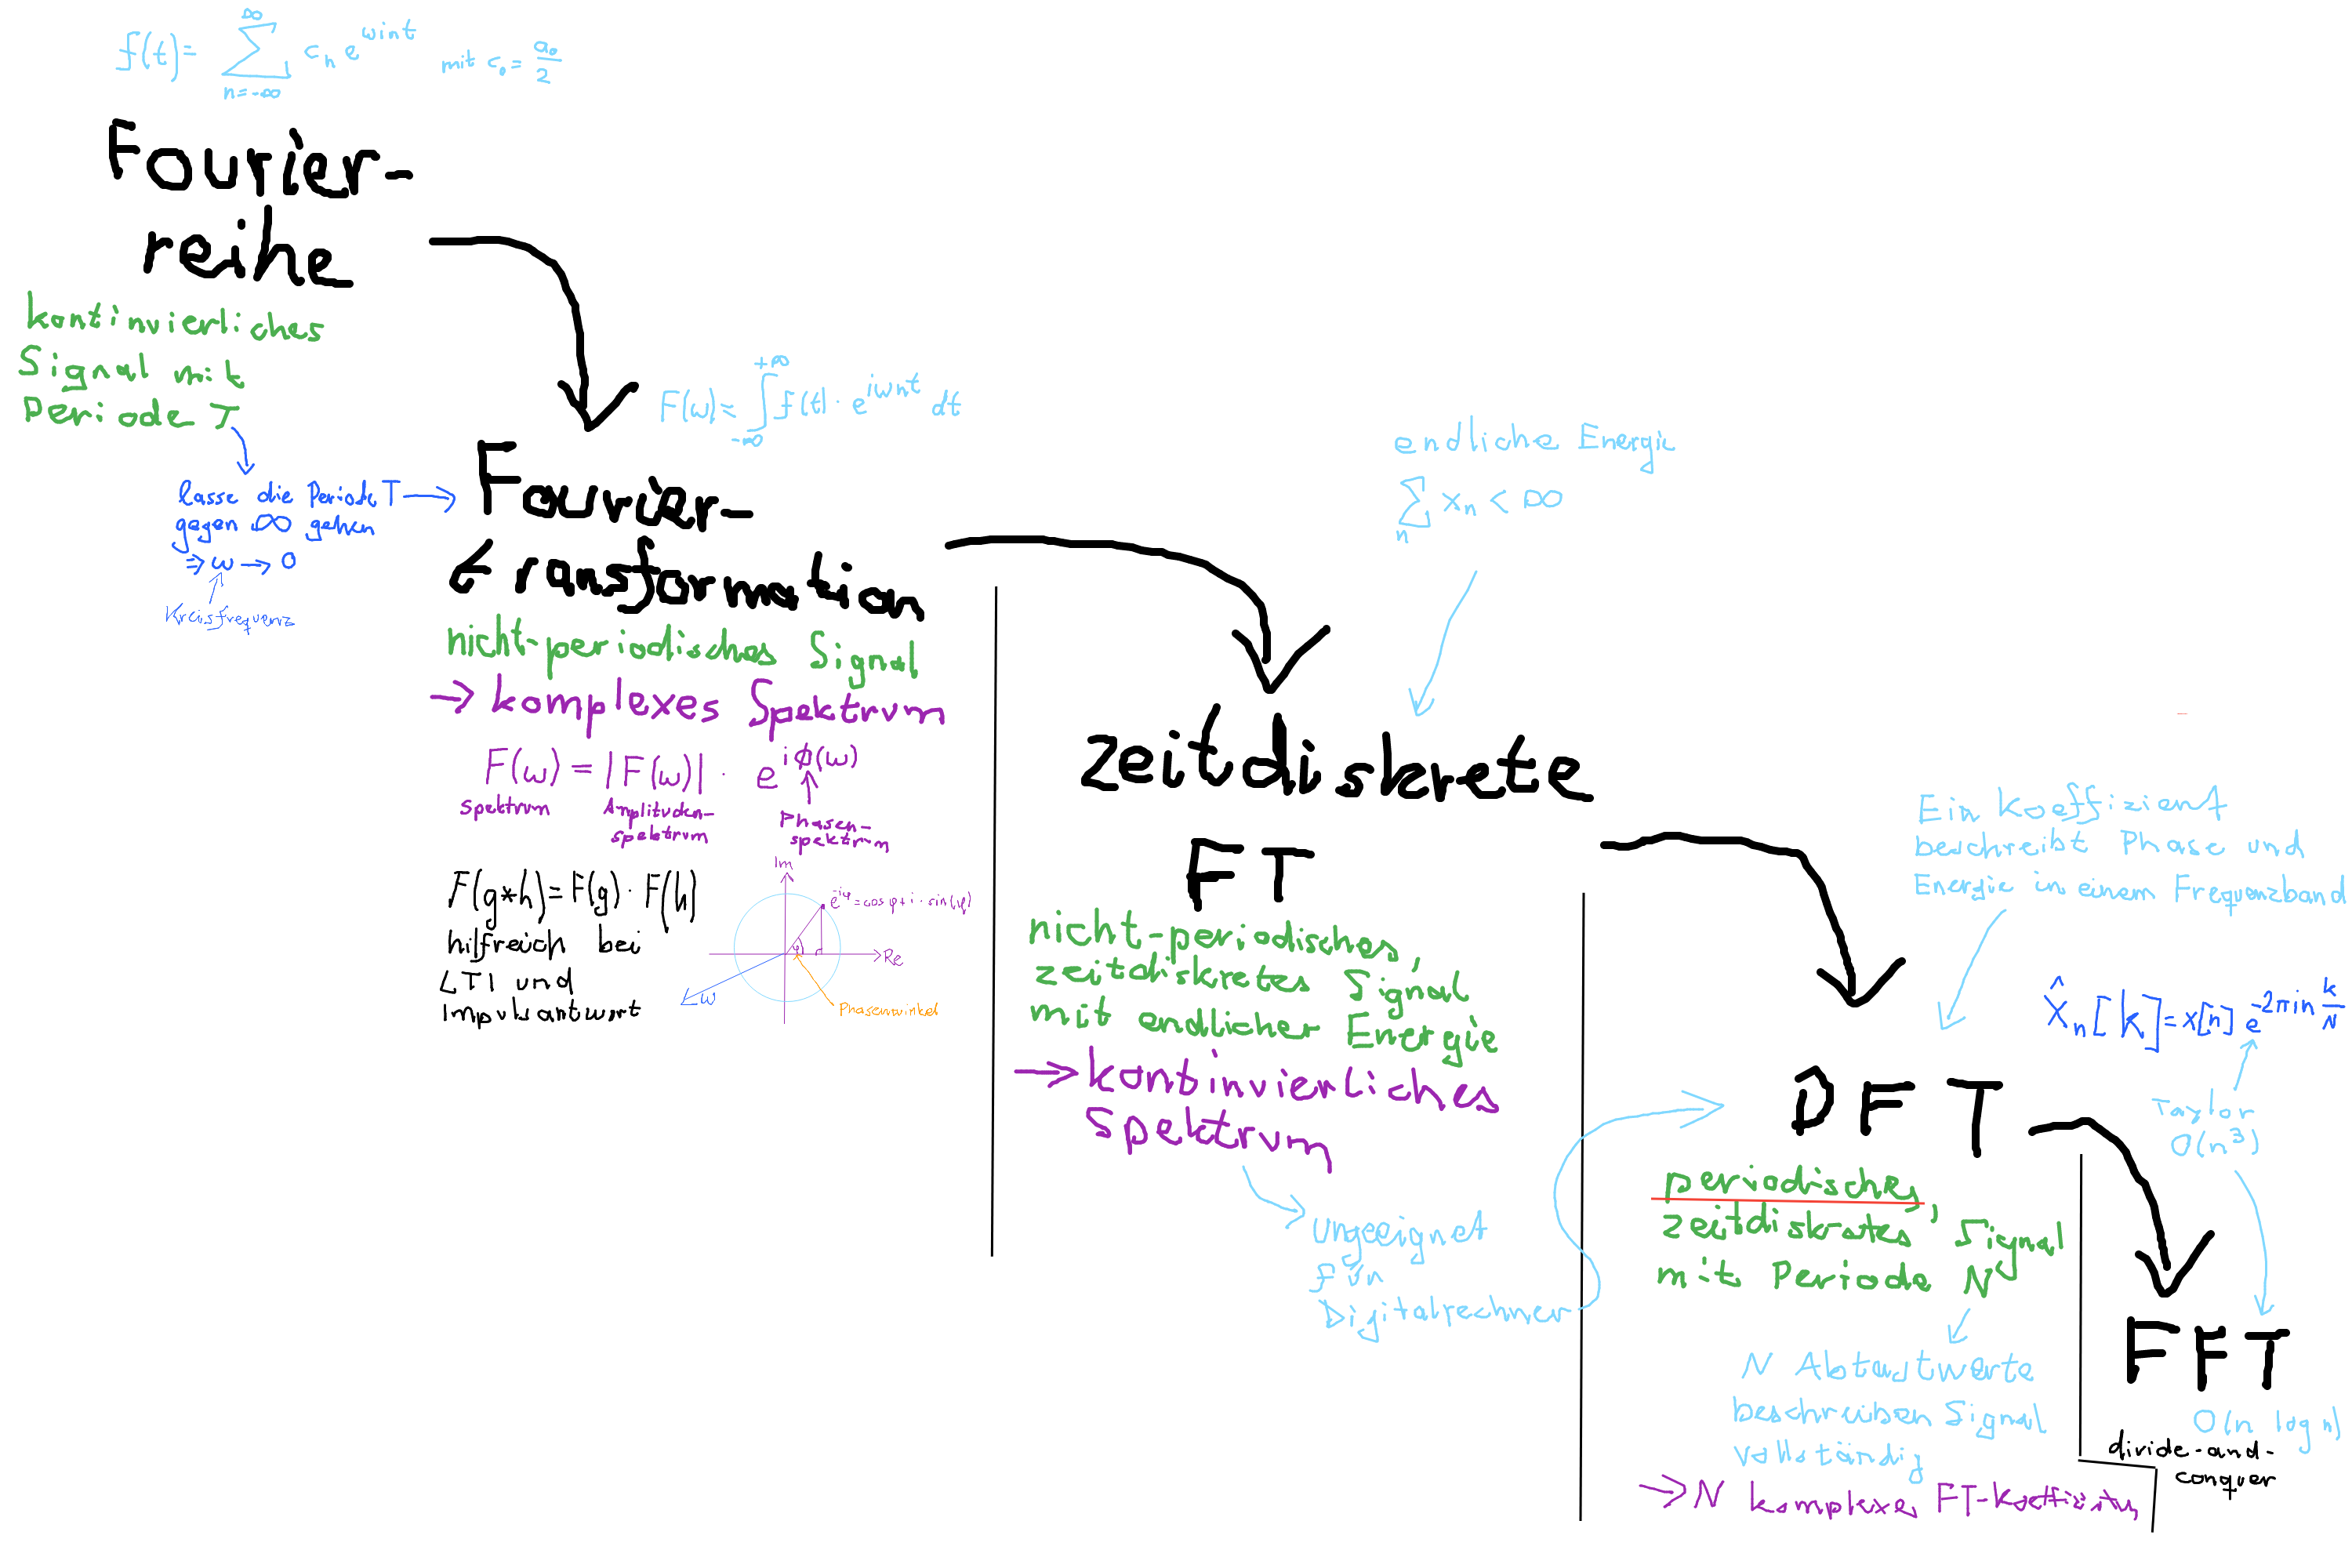 f(t) = ∑ c_n e^{wint} mit c_0 = a_0/2
∞
n=-∞
Fourier-
reihe
kontinuierliches
Signal mit
Periode T
lasse die Periode T
gegen ∞ gehen
⇒ ω → 0
Kreisfrequenz
F(ω) = ∫_{-∞}^{+∞} f(t) · e^{iωnt} dt
Fourier-
transformation
nicht-periodisches Signal
→ komplexes Spektrum
F(ω) = |F(ω)| · e^{iϕ(ω)}
Spektrum
Amplituden-
spektrum
Phasen-
spektrum
F(g*h) = F(g) · F(h)
hilfreich bei
LTI und
Impulsantwort
Im
e^{-iφ} = cos φ + i · sin(φ)
φ
Re
ω
Phasenwinkel
endliche Energie
∑_n x_n < ∞
zeitdiskrete
FT
nicht-periodisches,
zeitdiskretes Signal
mit endlicher Energie
→ kontinuierliches
Spektrum
ungeeignet
für
Digitalrechner
Ein Koeffizient
beschreibt Phase und
Energie in einem Frequenzband
X̂_n[k] = x[n] e^{-2πin k/N}
Taylor
O(n³)
DFT
periodisches,
zeitdiskretes Signal
mit Periode N
N Abtastwerte
beschreiben Signal
vollständig
→ N komplexe FT-Koeffizienten
FFT
O(n log n)
divide-and-
conquer